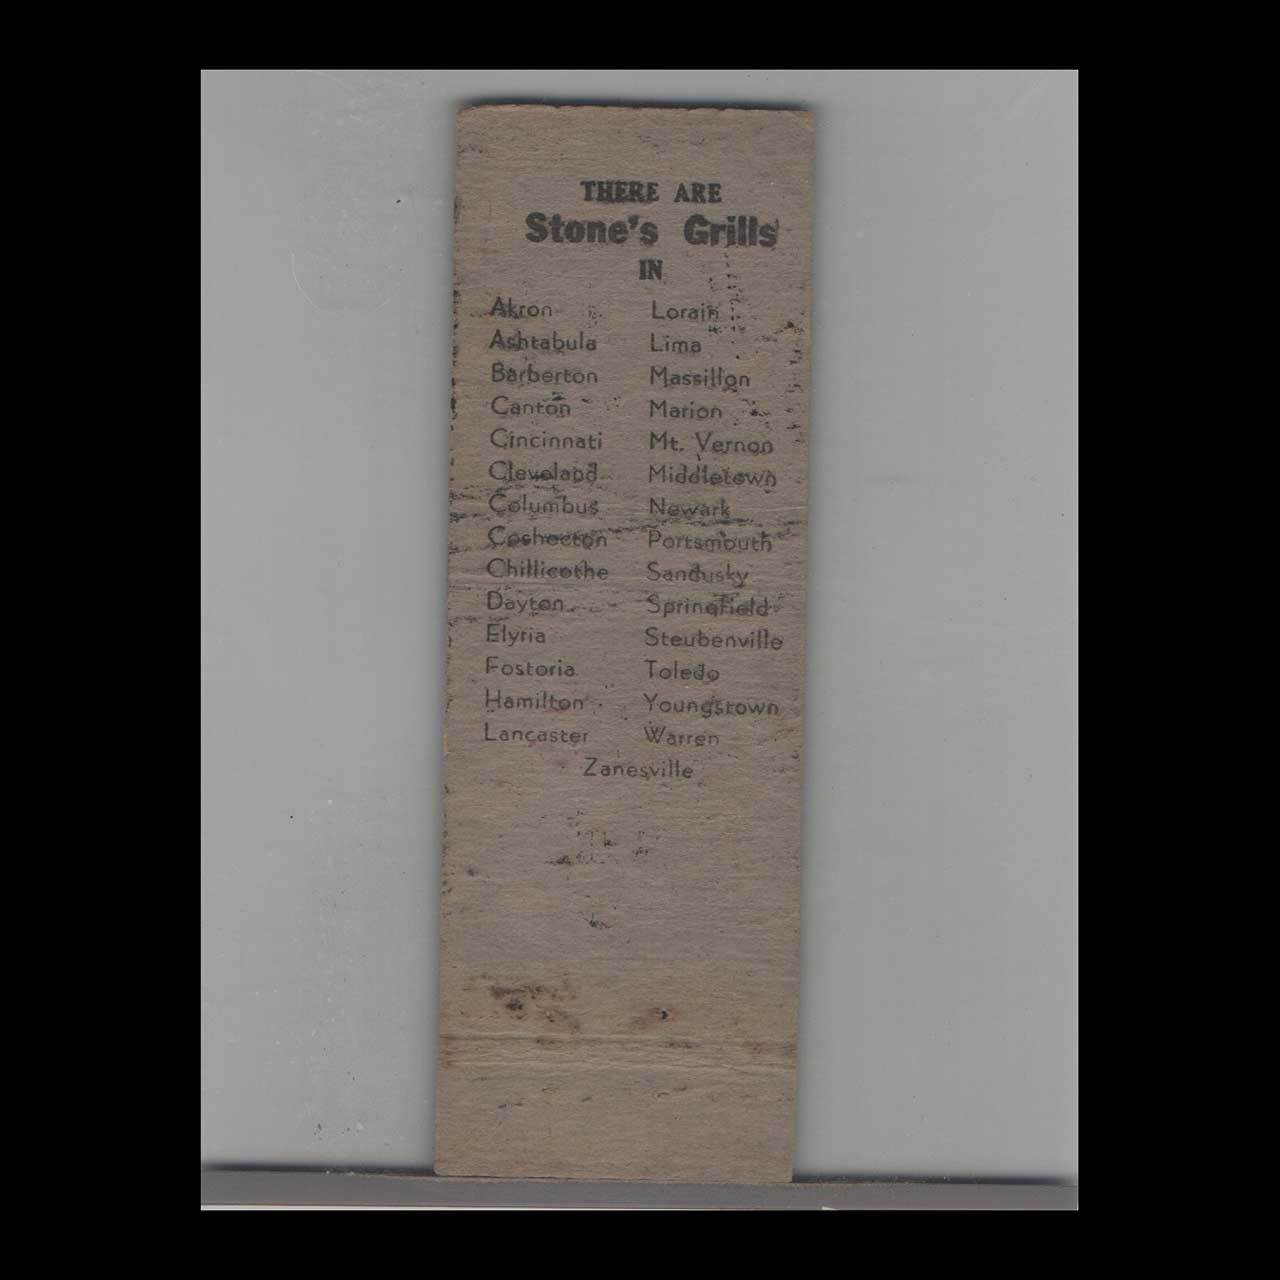 THERE ARE
Stone's Grills
IN
Akron Lorain
Ashtabula Lima
Barberton Massillon
Canton Marion
Cincinnati Mt. Vernon
Cleveland Middletown
Columbus Newark
Coshocton Portsmouth
Chillicothe Sandusky
Dayton Springfield
Elyria Steubenville
Fostoria Toledo
Hamilton Youngstown
Lancaster Warren
Zanesville